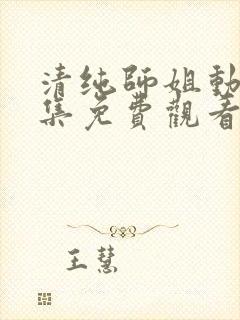 清纯师姐動
集免費觀看
王慧